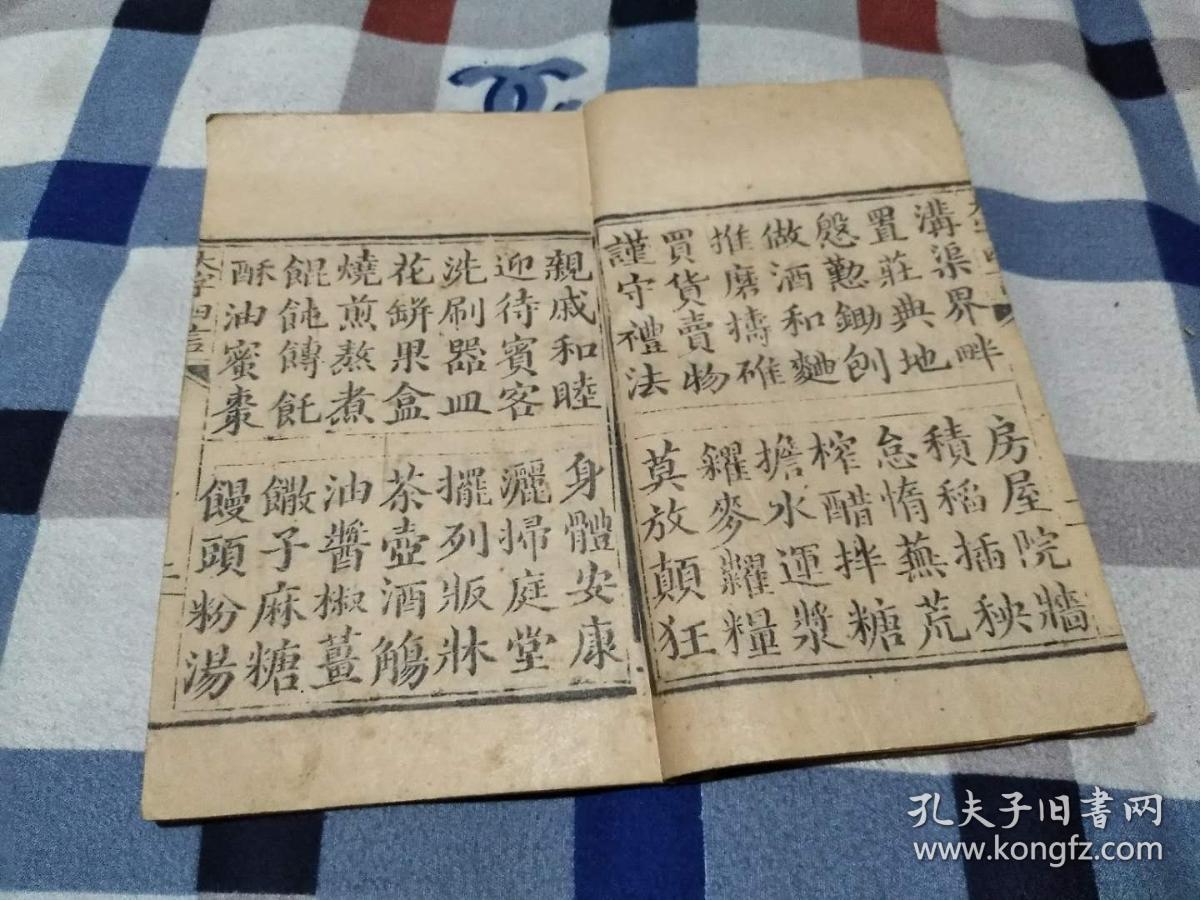 溝渠界畔 房屋院牆
置莊典地 積稻插秧
慇懃鋤刨 怠惰蕪荒
做酒和麯 榨醋拌糖
推磨擣碓 擔水運漿
買貨賣物 糴麥糶糧
謹守禮法 莫放顛狂
親戚和睦 身體安康
迎待賓客 灑掃庭堂
洗刷器皿 擺列版牀
花缾果盒 茶壺酒觴
燒煎熬煮 油醬椒薑
餛飩餺飥 饊子麻糖
酥油蜜棗 饅頭粉湯
大字四言
孔夫子旧书网
www.kongfz.com